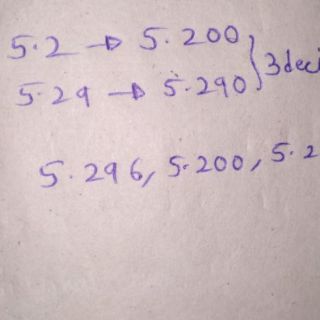 5.2 → 5.200
5.29 → 5.290 } 3 deci
5.296, 5.200, 5.2